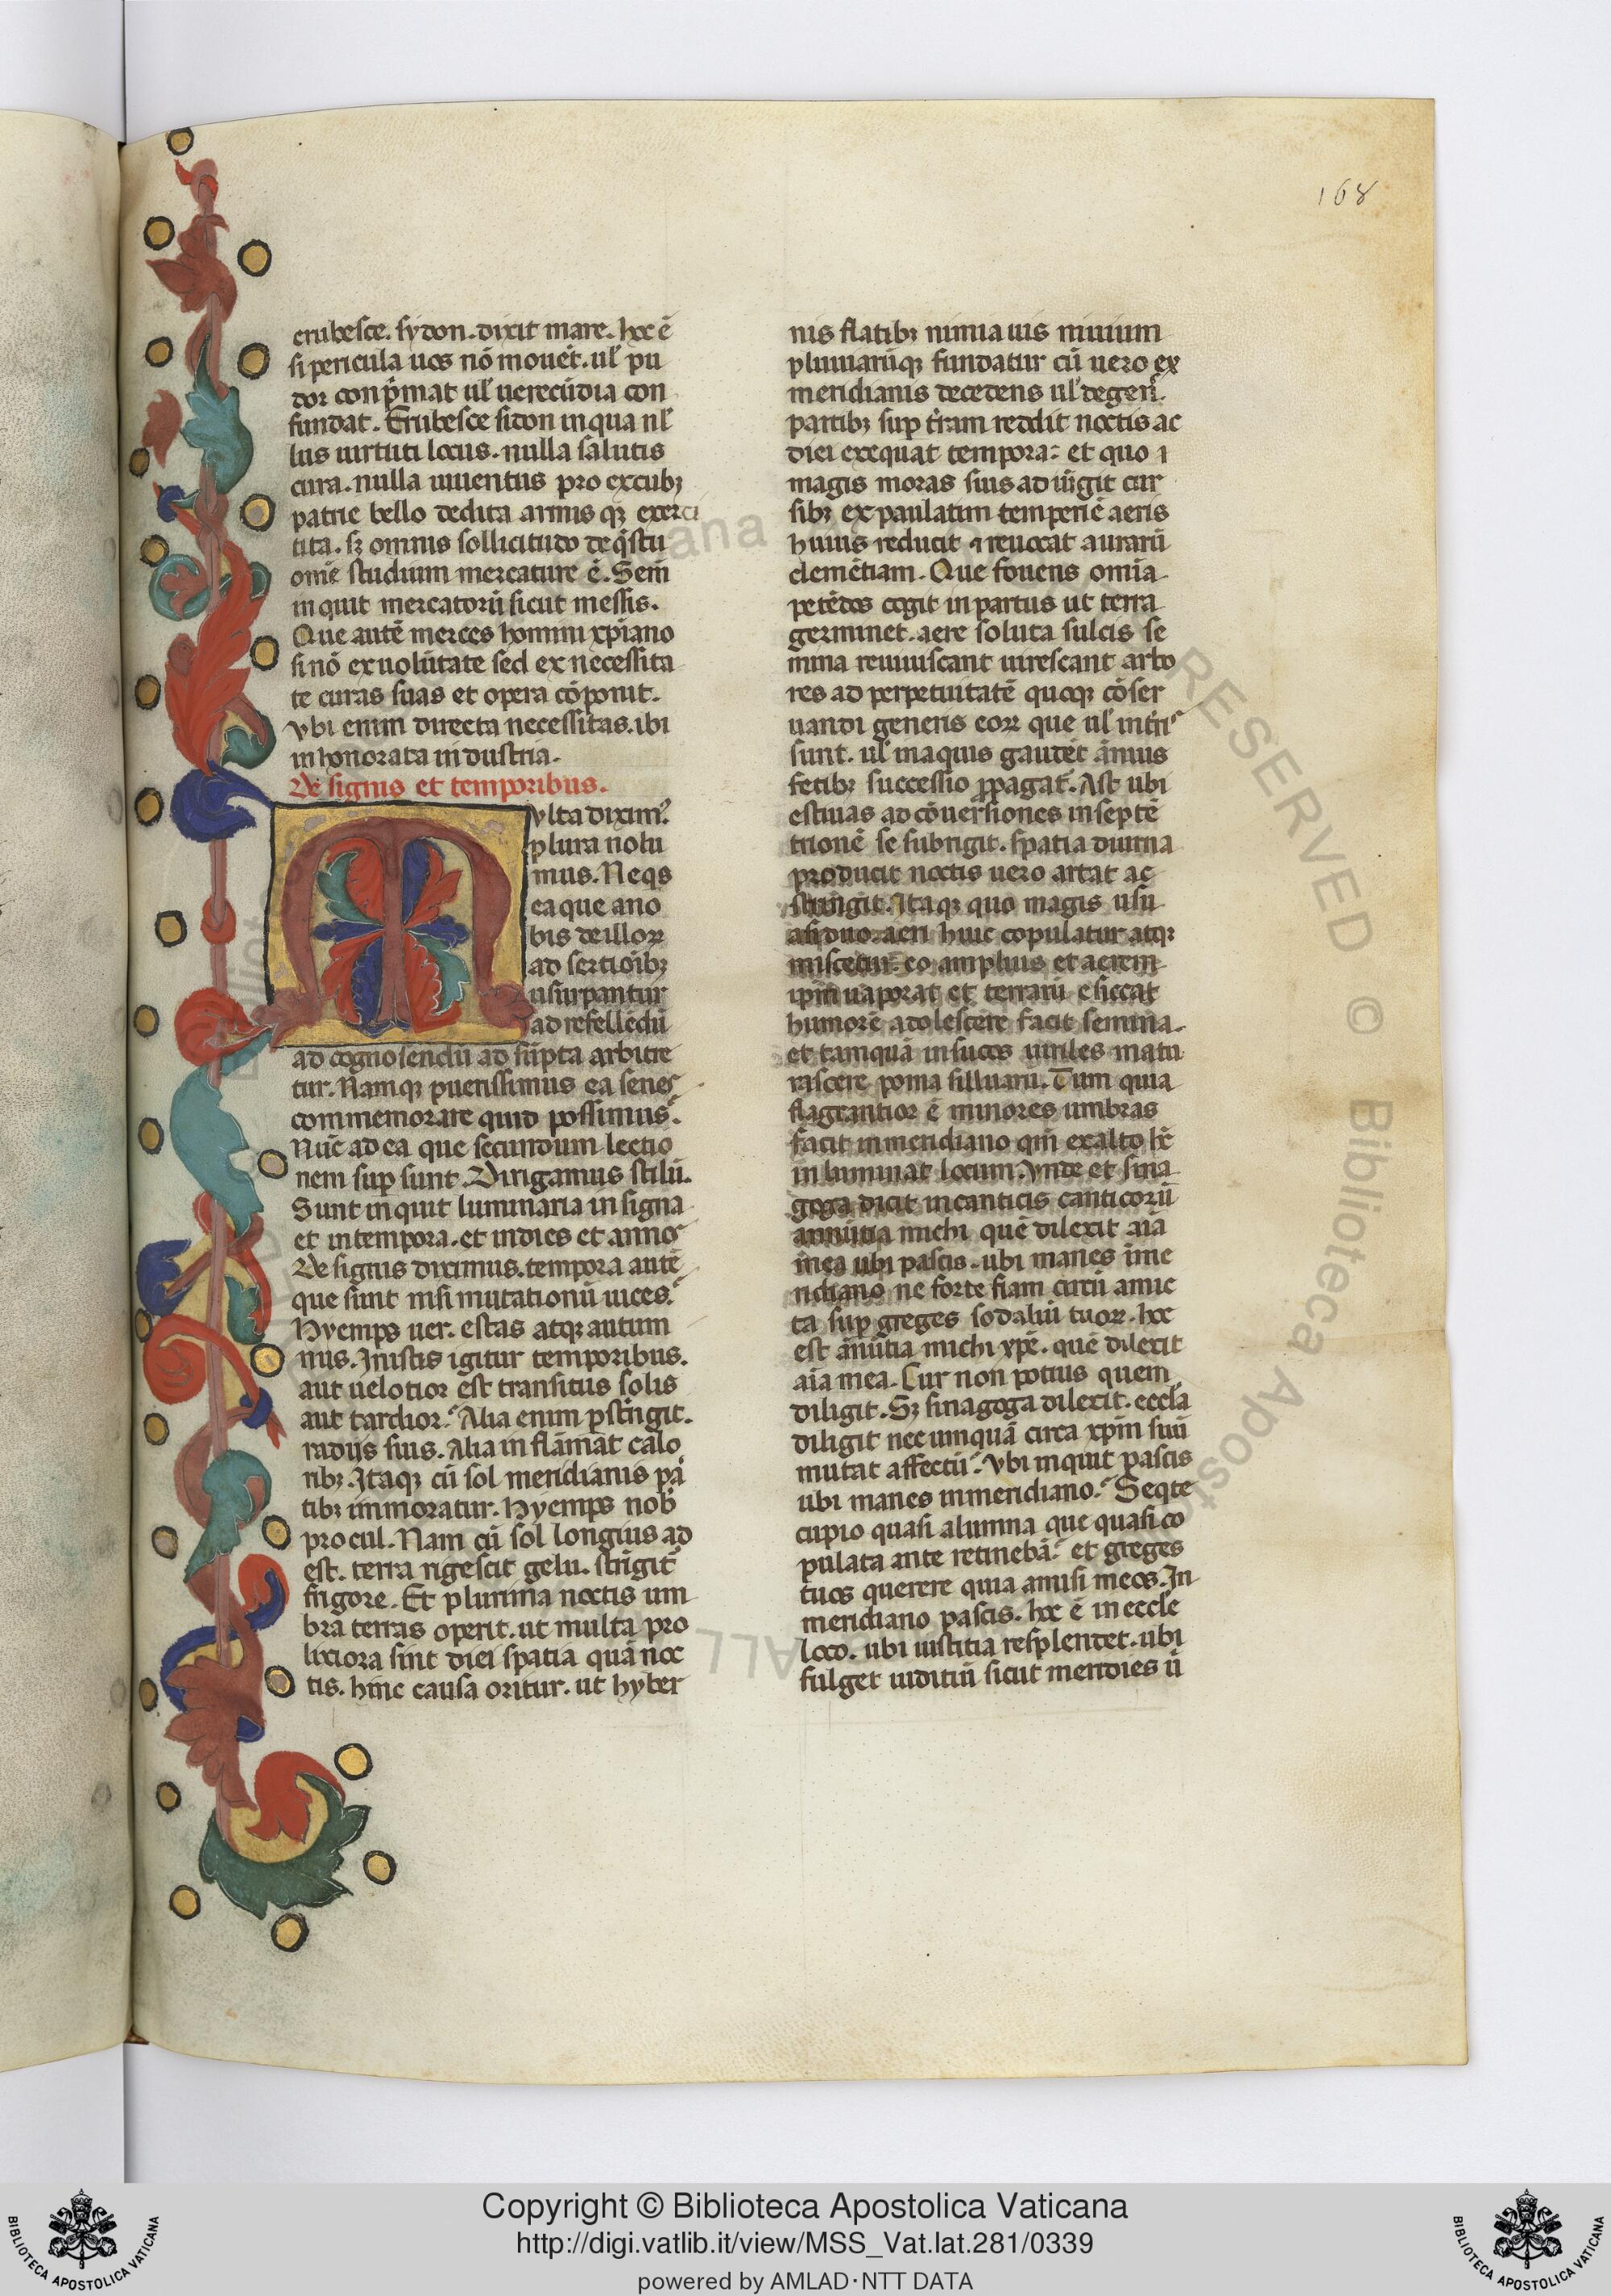 168
erubesce. sydon. dixit mare. hoc ē
si pericula uos nō mouēt. ul' pu
dor conp̄mat ul' uerecūdia con
fundat. Erubesce sidon in qua nl'
lus uirtuti locus. nulla salutis
cura. nulla iuuentus pro excubꝫ
patrie bello dedita armis qꝫ exerci
tita. sꝫ omnis sollicitudo de q̄stu
omē studium mercature ē. Semē
inquit mercatorū sicut messis.
Que autē merces homini xp̄iano
si nō ex uolūtate sed ex necessita
te curas suas et opera cōponit.
vbi enim directa necessitas. ibi
inhonorata industria.
De signis et temporibus.
Multa diximꝰ.
plura nolu
mus. Neqꝫ
ea que ano
bis de illoꝝ
ad sertioībꝫ
usurpantur
ad refellēdū
ad cognosendū ad sūpta arbitre
tur. Namqꝫ puerissimus ea senes
commemorare quid possimus.
Nūc ad ea que secundum lectio
nem suꝑ sunt. Dirigamus stilū.
Sunt inquit luminaria in signa
et in tempora. et in dies et annos
De signis diximus. tempora autē
que sunt nisi mutationū uices.
Hyemps uer. estas atqꝫ autum
nus. In istis igitur temporibus.
aut uelotior est transitus solis
aut tardior. Alia enim ꝑstrīgit.
radijs suis. Alia in flāmat calo
ribꝫ. Itaqꝫ cū sol meridianis pā
tibꝫ immoratur. Hyemps nob̄
procul. Nam cū sol longius ad
est. terra rigescit gelu. strīgit̄
frigore. Et plurima noctis um
bra terras operit. ut multa pro
lixiora sint diei spatia quā noc
tis. hinc causa oritur. ut hyber
nis flatibꝫ nimia uis niuium
pluuiarūqꝫ fundatur cū uero ex
meridianis decedens ul' degen̄.
partibꝫ suꝑ t̄ram reddit noctis ac
diei exequat tempora: et quo
magis moras suis ad iūgit cur
sibꝫ ex paulatim temperiē aeris
huius reducit ⁊ reuocat aurarū
clemētiam. Que fouens omīa
petēdos cogit in partus ut terra
germinet. aere soluta sulcis se
mina reuiuiscant uirescant arbo
res ad perpetuitatē quoqꝫ cōser
uandi generis eoꝝ que ul' int̄ris
sunt. ul' in aquis gaudēt ānuus
fetibꝫ successio ꝓpagat̄. Ast ubi
estiuas ad cōuersiones in septē
trionē se subrigit. spatia diurna
producit noctis uero artat ac
stringit. Itaqꝫ quo magis usu
asiduo. aeri huic copulatur atqꝫ
miscetur. eo amplius et aerem
ip̄m uaporat et terrarū esiccat
humorē adolescere facit semina.
et tamquā in sucos uiriles matu
rascere poma silluarū. Tum quia
flagrantior ē minores umbras
facit in meridiano qm̄ ex alto hc̄
in luminat locum. Vnde et sina
goga dicit in canticis canticorū
annūtia michi quē dilexit aīa
mea ubi pascis. ubi manes ī me
ridiano ne forte fiam circū amic
ta suꝑ greges sodaliū tuoꝝ. hoc
est ānūtia michi xp̄e. quē dilexit
aīa mea. Cur non potius quem
diligit. Sꝫ sinagoga dilexit. eccl̄a
diligit nec umquā circa xp̄m suū
mutat affectū. Vbi inquit pascis
ubi manes in meridiano. Seq̄ te
cupio quasi alumna que quasi co
pulata ante retinebā. et greges
tuos querere quia amisi meos. In
meridiano pascis. hoc ē in eccl̄e
loco. ubi iustitia resplendet. ubi
fulget iuditiū sicut meridies ū
Copyright © Biblioteca Apostolica Vaticana
http://digi.vatlib.it/view/MSS_Vat.lat.281/0339
powered by AMLAD·NTT DATA
BIBLIOTECA APOSTOLICA VATICANA
BIBLIOTECA APOSTOLICA VATICANA